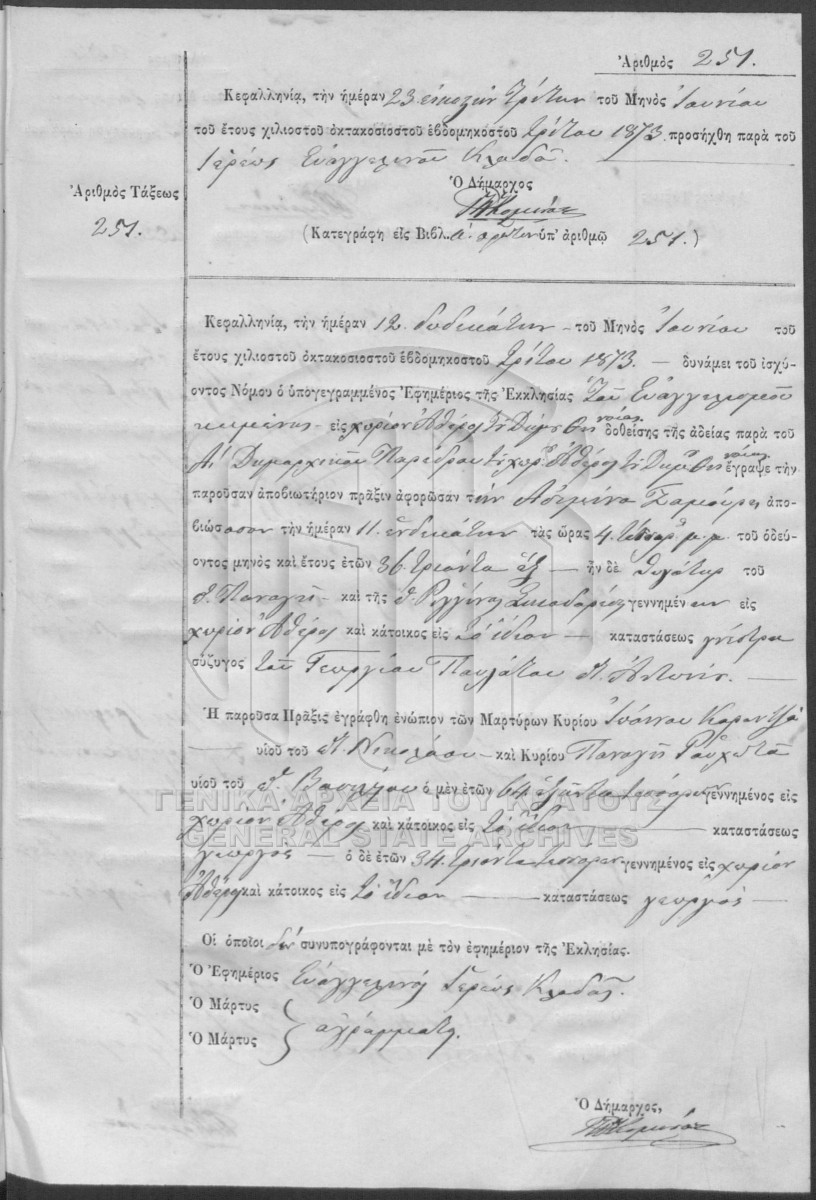 Ἀριθμὸς 251.
Κεφαλληνίᾳ, τὴν ἡμέραν 23 εἰκοστὴν τρίτην τοῦ Μηνὸς Ἰουνίου
τοῦ ἔτους χιλιοστοῦ ὀκτακοσιοστοῦ ἑβδομηκοστοῦ τρίτου 1873. προσήχθη παρὰ τοῦ
Ἱερέως Εὐαγγελινοῦ Κλαδᾶ.
Ἀριθμὸς Τάξεως
251.
Ὁ Δήμαρχος
(Κατεγράφη εἰς Βιβλ. α. πρῶτον ὑπ' ἀριθμῷ 251.)
Κεφαλληνίᾳ, τὴν ἡμέραν 12 δωδεκάτην τοῦ Μηνὸς Ἰουνίου τοῦ
ἔτους χιλιοστοῦ ὀκτακοσιοστοῦ ἑβδομηκοστοῦ τρίτου 1873. — δυνάμει τοῦ ἰσχύ-
οντος Νόμου ὁ ὑπογεγραμμένος Ἐφημέριος τῆς Ἐκκλησίας Τοῦ Εὐαγγελισμοῦ
κειμένης — εἰς χωρίον Ἀθέρα δοθείσης τῆς ἀδείας παρὰ τοῦ
Δημαρχικοῦ Παρέδρου ἔγραψε τὴν
παροῦσαν ἀποβιωτήριον πρᾶξιν ἀφορῶσαν τὴν Ἀσημίνα ἀπο-
βιώσασαν τὴν ἡμέραν 11 ἑνδεκάτην τὰς ὥρας 4. μ.μ. τοῦ ὁδεύ-
οντος μηνὸς καὶ ἔτους ἐτῶν 36 τριάντα ἕξ — ἦν δὲ θυγάτηρ τοῦ
π. Παναγῆ — καὶ τῆς γεννημένην εἰς
χωρίον Ἀθέρα καὶ κάτοικος εἰς τὸ ἴδιον — καταστάσεως γνέστρα
σύζυγος τοῦ Γεωργίου Παυλάτου
Ἡ παροῦσα Πρᾶξις ἐγράφθη ἐνώπιον τῶν Μαρτύρων Κυρίου Ἰωάννου
υἱοῦ τοῦ π. Νικολάου — καὶ Κυρίου Παναγῆ
υἱοῦ τοῦ π. Βασιλείου ὁ μὲν ἐτῶν 64 ἑξῆντα τεσσάρων γεννημένος εἰς
χωρίον Ἀθέρα καὶ κάτοικος εἰς τὸ ἴδιον — καταστάσεως
γεωργὸς — ὁ δὲ ἐτῶν 34. τριάντα τεσσάρων γεννημένος εἰς χωρίον
Ἀθέρα καὶ κάτοικος εἰς τὸ ἴδιον — καταστάσεως γεωργὸς —
ΓΕΝΙΚΑ ΑΡΧΕΙΑ ΤΟΥ ΚΡΑΤΟΥΣ
GENERAL STATE ARCHIVES
Οἱ ὁποῖοι δὲν συνυπογράφονται μὲ τὸν ἐφημέριον τῆς Ἐκλησίας.
Ὁ Ἐφημέριος Εὐαγγελινὸς Ἱερεὺς Κλαδᾶς.
Ὁ Μάρτυς
Ὁ Μάρτυς ἀγράμματοι.
Ὁ Δήμαρχος,